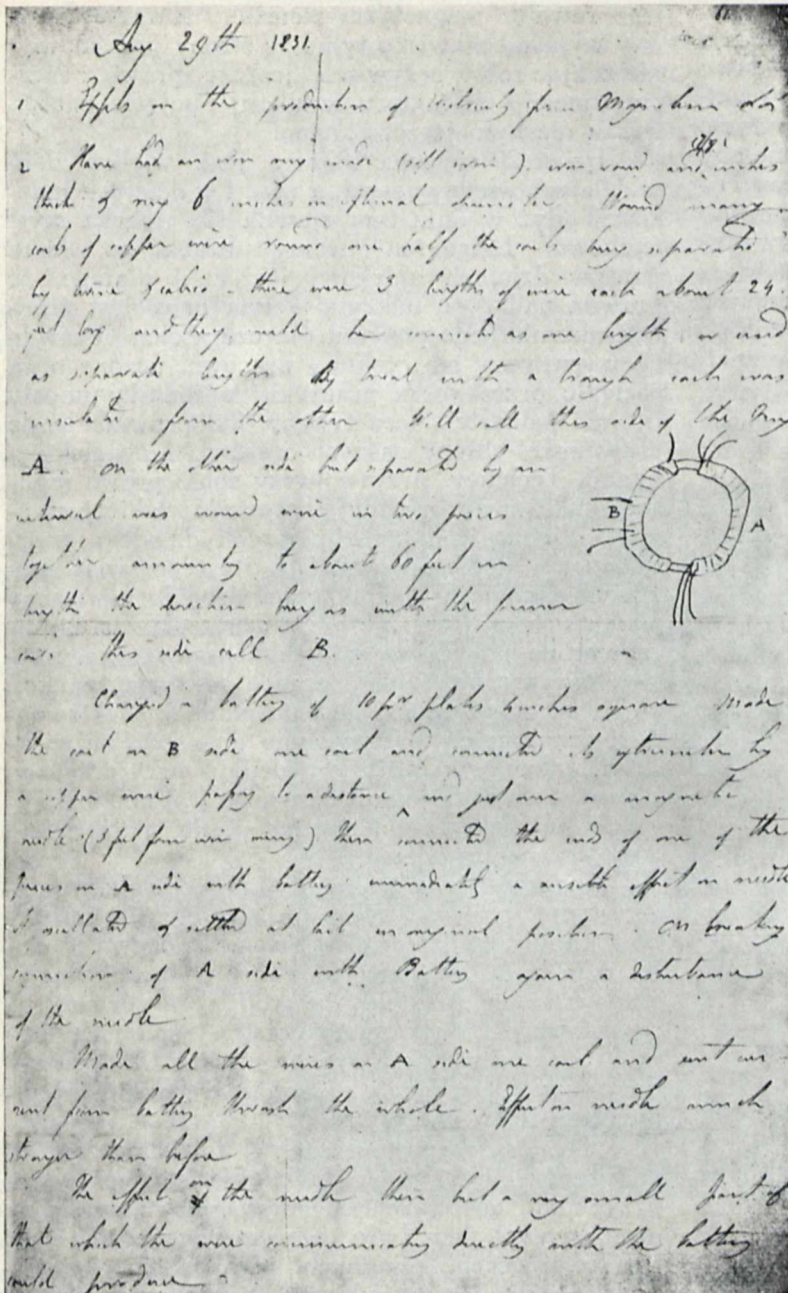 Aug 29th 1831.
1 Expts on the production of Electricity from Magnetism &c &c
2 Have had an iron ring made (soft iron), iron round and 7/8 inches
thick & ring 6 inches in external diameter. Wound many
coils of copper wire round one half the coils being separated
by twine & calico - there were 3 lengths of wire each about 24
feet long and they could be connected as one length or used
as separate lengths By trial with a trough each was
insulated from the other Will call this side of the ring
A. on the other side but separated by an
interval was wound wire in two pieces
together amounting to about 60 feet in
length the direction being as with the former
coils this side call B.
B
A
Charged a battery of 10 pr plates 4 inches square Made
the coil on B side one coil and connected its extremities by
a copper wire passing to a distance and just over a magnetic
needle (3 feet from iron ring) then connected the ends of one of the
pieces on A side with battery immediately a sensible effect on needle
It oscillated & settled at last in original position. On breaking
connection of A side with Battery again a disturbance
of the needle
Made all the wires on A side one coil and sent cur-
rent from battery through the whole. Effect on needle much
stronger than before
The effect on the needle then but a very small part of
that which the wire communicating directly with the battery
could produce